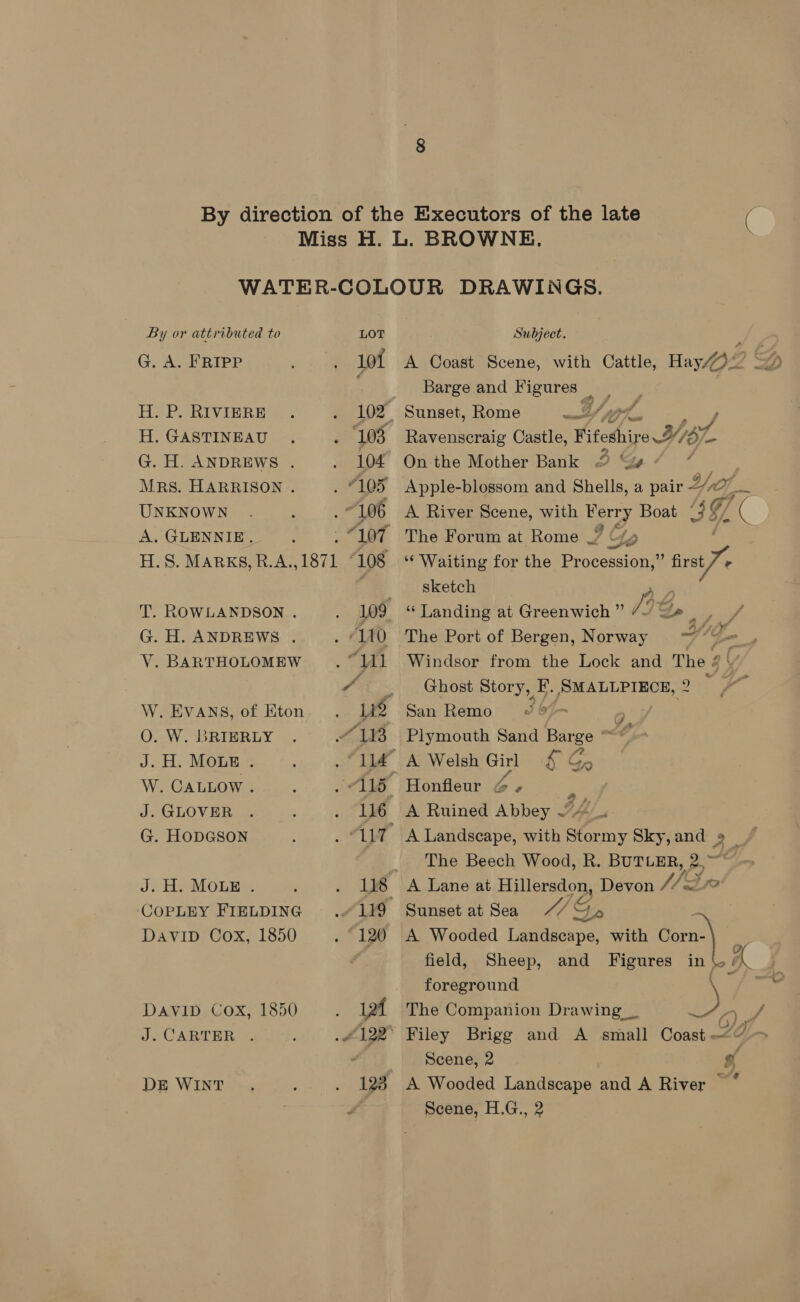 8
By direction of the Executors of the late
Miss H. L. BROWNE.
WATER-COLOUR DRAWINGS.
By or attributed to LOT Subject.
G. A. FRIPP . . 101 A Coast Scene, with Cattle, Hay
Barge and Figures
H. P. RIVIERE . . 102 Sunset, Rome
H. GASTINEAU . . 103 Ravenscraig Castle, Fifeshire
G. H. ANDREWS . . 104 On the Mother Bank
MRS. HARRISON . . 105 Apple-blossom and Shells, a pair
UNKNOWN . . . 106 A River Scene, with Ferry Boat
A. GLENNIE . . . 107 The Forum at Rome
H. S. MARKS, R.A., 1871 108 “Waiting for the Procession,” first
sketch
T. ROWLANDSON . . 109 “Landing at Greenwich”
G. H. ANDREWS . . 110 The Port of Bergen, Norway
V. BARTHOLOMEW . 111 Windsor from the Lock and The
Ghost Story, F. SMALLPIECE, 2
W. EVANS, of Eton . 112 San Remo
O. W. BRIERLY . 113 Plymouth Sand Barge
J. H. MOLE . . . 114 A Welsh Girl
W. CALLOW . . . 115 Honfleur
J. GLOVER . . . 116 A Ruined Abbey
G. HODGSON . . 117 A Landscape, with Stormy Sky, and
The Beech Wood, R. BUTLER, 2
J. H. MOLE . . . 118 A Lane at Hillersdon, Devon
COPLEY FIELDING . 119 Sunset at Sea
DAVID COX, 1850 . 120 A Wooded Landscape, with Corn-
field, Sheep, and Figures in
foreground
DAVID COX, 1850 . 121 The Companion Drawing
J. CARTER . . . 122 Filey Brigg and A small Coast
Scene, 2
DE WINT . . . 123 A Wooded Landscape and A River
Scene, H.G., 2